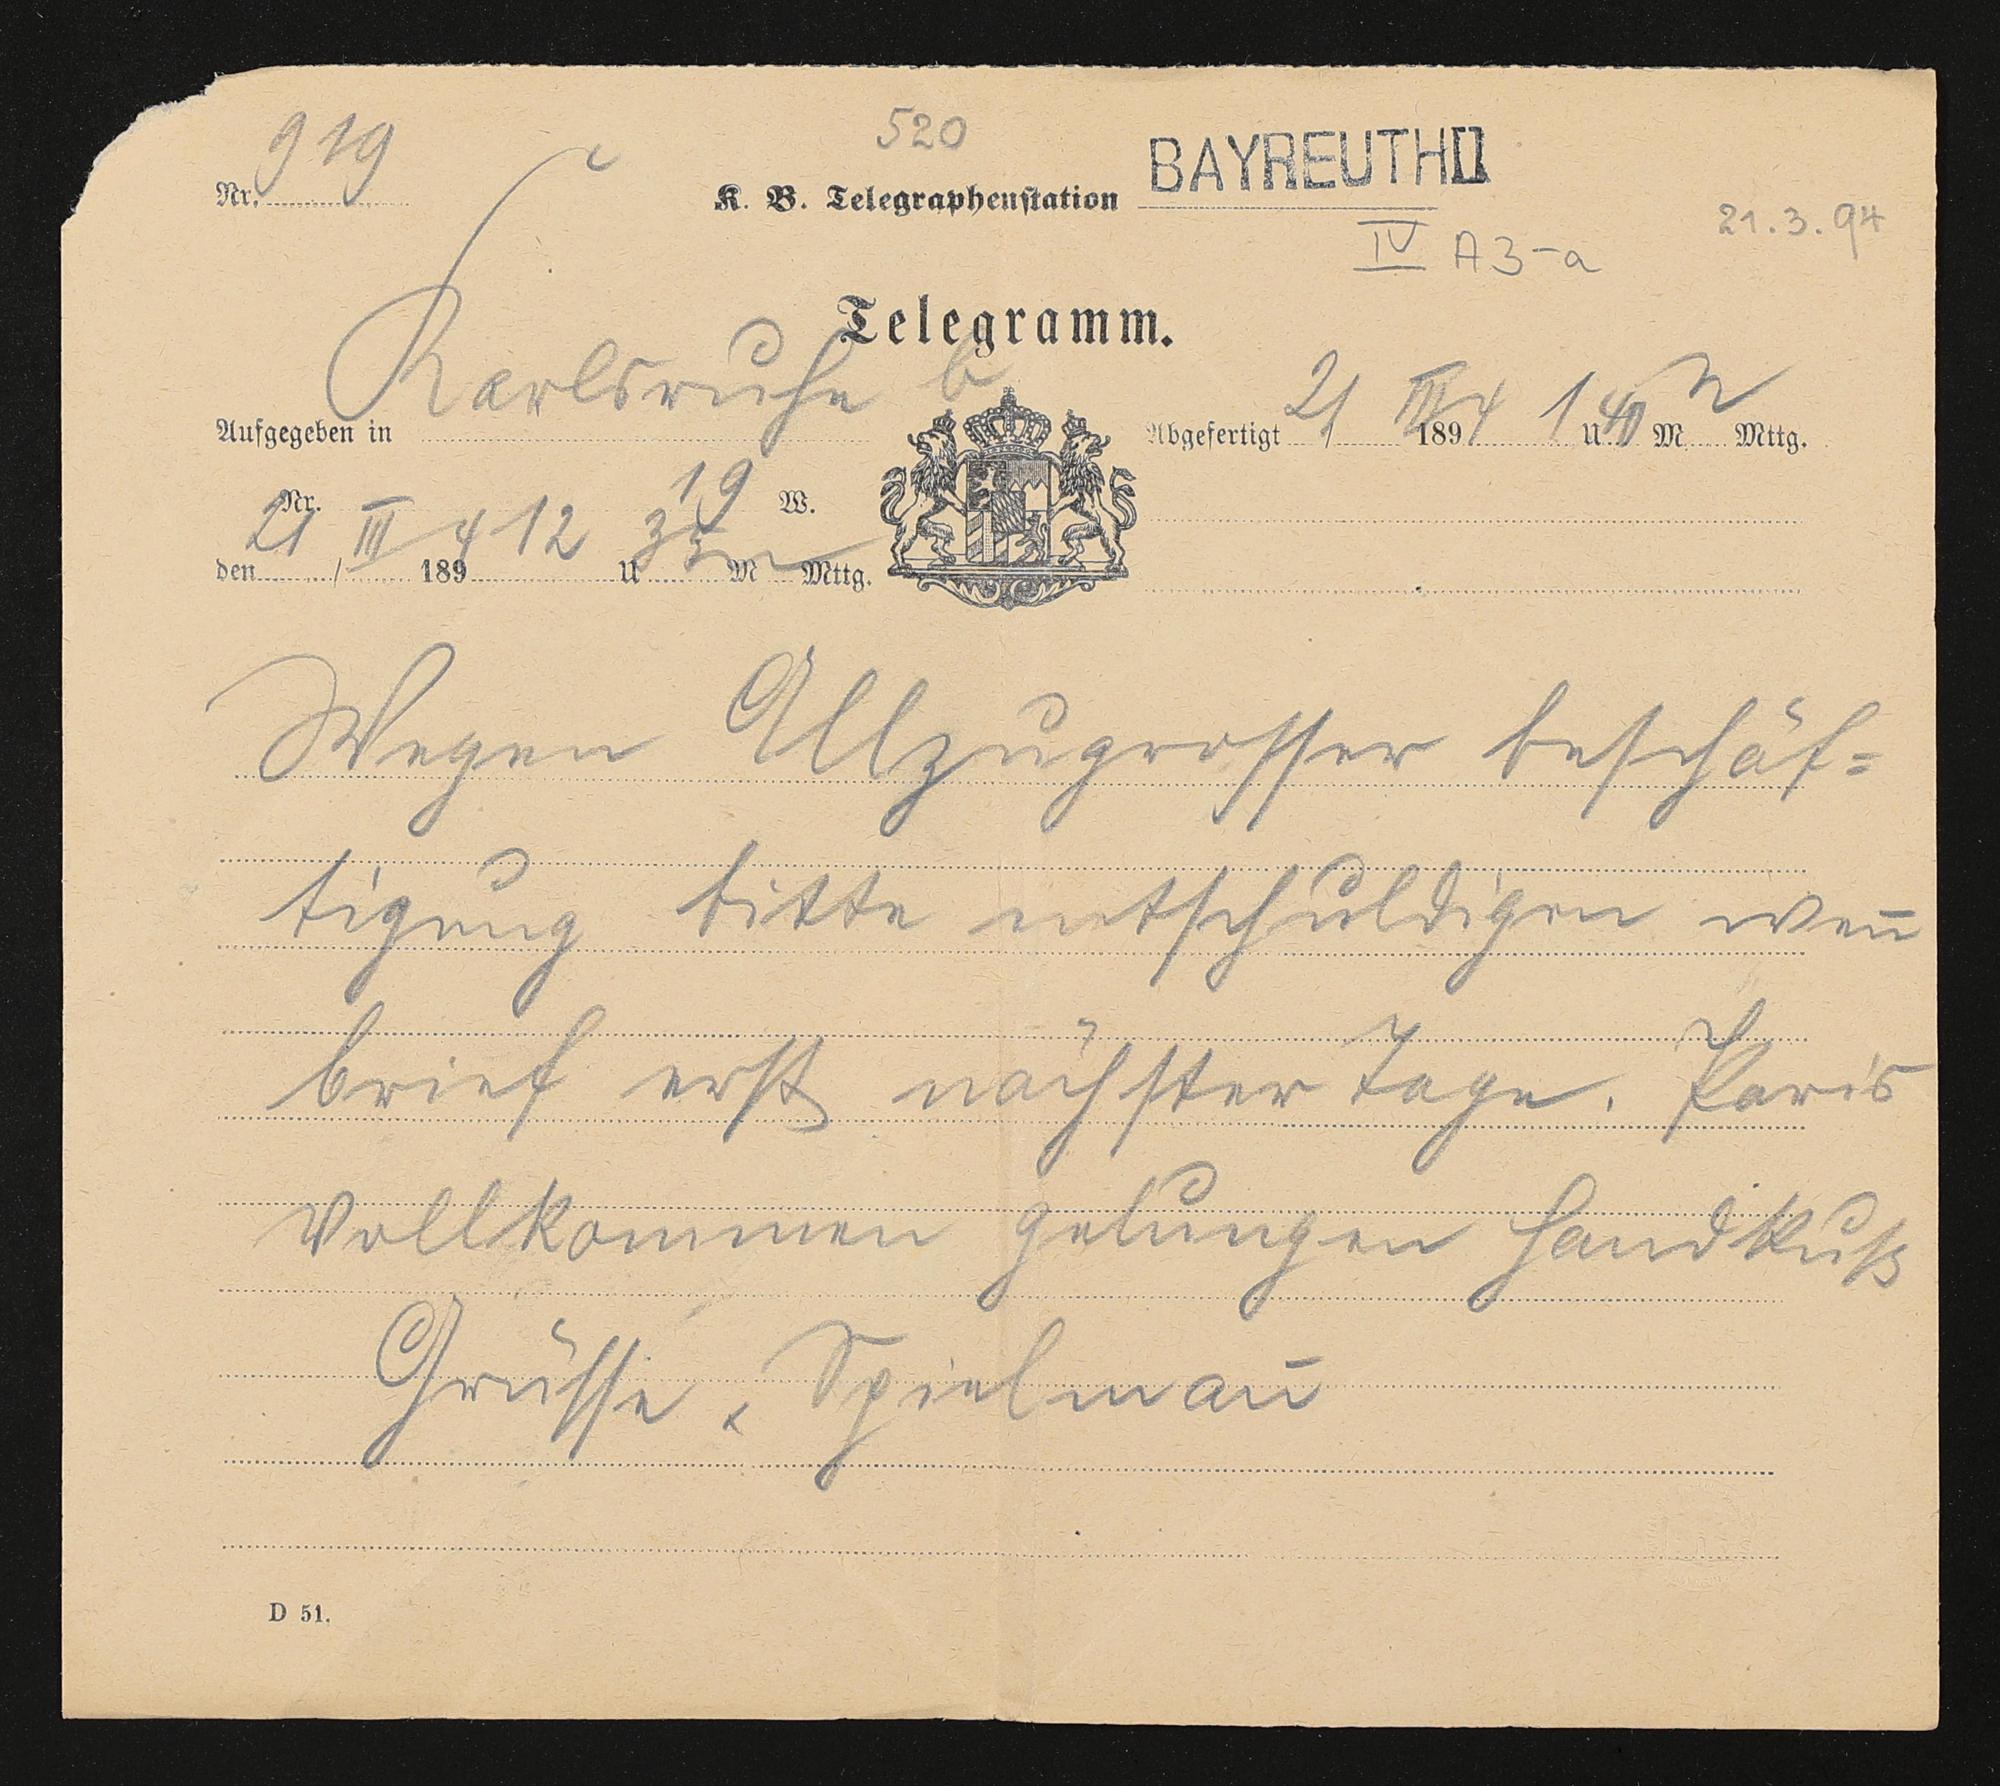 520
Nr. 919
K. B. Telegraphenstation BAYREUTH II
21.3.94
IV A3-a
Telegramm.
Aufgegeben in Karlsruhe b
Abgefertigt 21 III 1894 1 U 40 M N Mttg.
Nr. 19 W.
den 21 / III 1894 12 U 35 M n Mttg.
Wegen Allzugrosser beschäf=
tigung bitte entschuldigen wen̅
brief erst nächster tage. Paris
vollkommen gelungen Handkuß
Grüsse, Spielman̅
D 51.